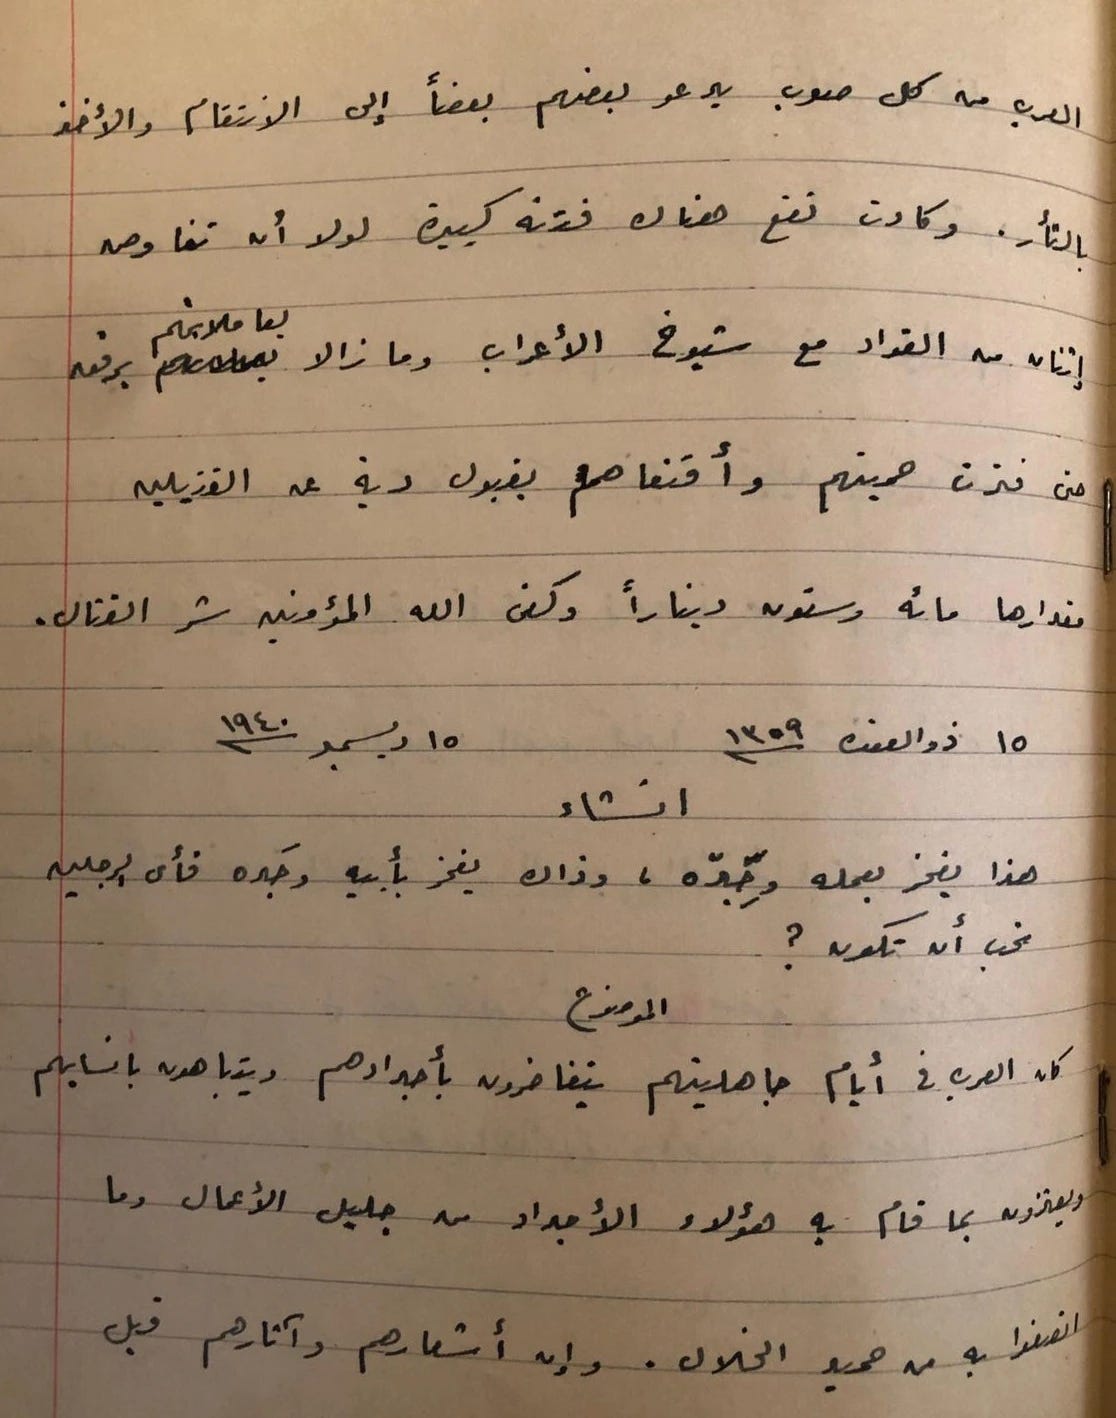 العرب من كل صوب يدعو بعضهم بعضاً إلى الانتقام والأخذ
بالثأر. وكادت تقع هناك فتنة كبيرة لولا أن تفاوض
إثنان من القواد مع شيوخ الأعراب وما زالا يعاملانهم برفق
حتى فترت حميتهم وأقنعاهم بقبول دية عن القتيلين
مقدارها مائة وستون ديناراً وكفى الله المؤمنين شر القتال.
١٥ ذو القعدة ١٣٥٩ ١٥ ديسمبر ١٩٤٠
انشاء
هذا يفخر بعمله وجِدّه، وذاك يفخر بأبيه وجَده فأى الرجلين
تحب أن تكون ؟
الموضوع
كان العرب فى أيام جاهليتهم يتفاخرون بأجدادهم ويتباهون بانسابهم
ويعتزون بما قام به هؤلاء الأجداد من جليل الأعمال وما
اتصفوا به من حميد الخلال. وإن أشعارهم وآثارهم قبل